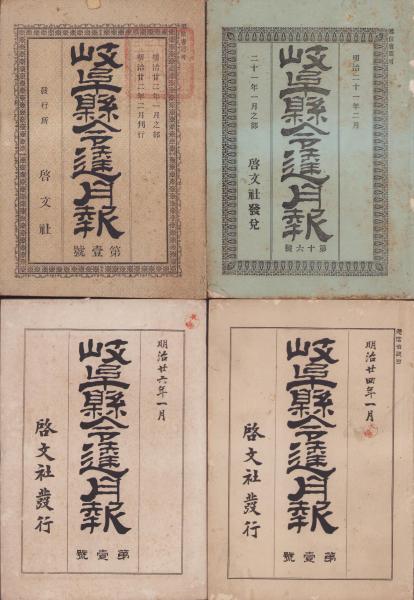 遞信省認可
明治廿二年一月之部
明治廿二年二月刊行
岐阜縣令達月報
第壹號
發行所
啓文社
遞信省認可
明治二十一年二月
岐阜縣令達月報
第十六號
二十一年一月之部
啓文社發兌
明治廿六年一月
岐阜縣令達月報
第壹號
啓文社發行
遞信省認可
明治廿四年一月
岐阜縣令達月報
第壹號
啓文社發行